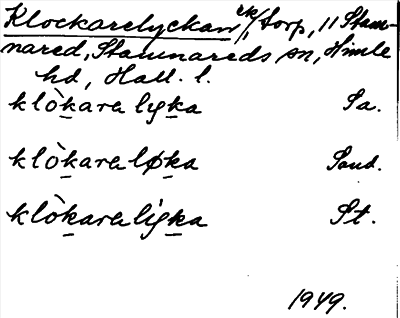 Klockarelyckan ck/, torp, 11 Stam-
nared, Stamnareds sn, Himle
hd, Hall. l.
klòkara lyka Sa.
klòkara løka Sand.
klòkara ligka St.
1949.